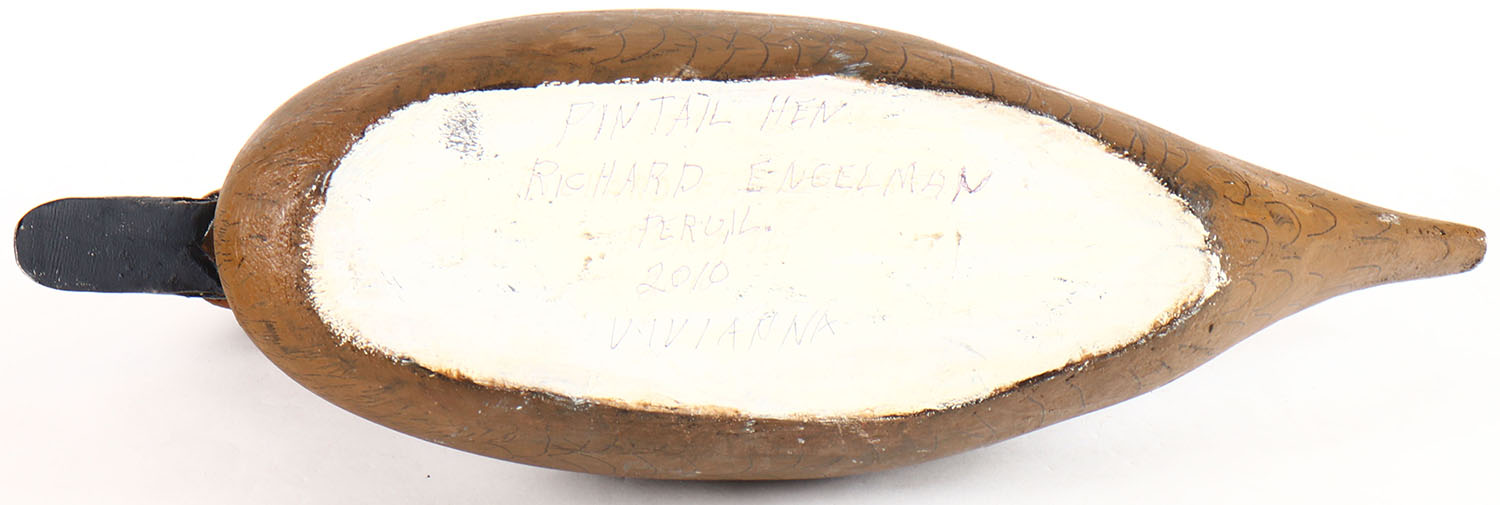 PINTAIL HEN
RICHARD ENGELMAN
PERU, IL.
2010
VIVIANNA